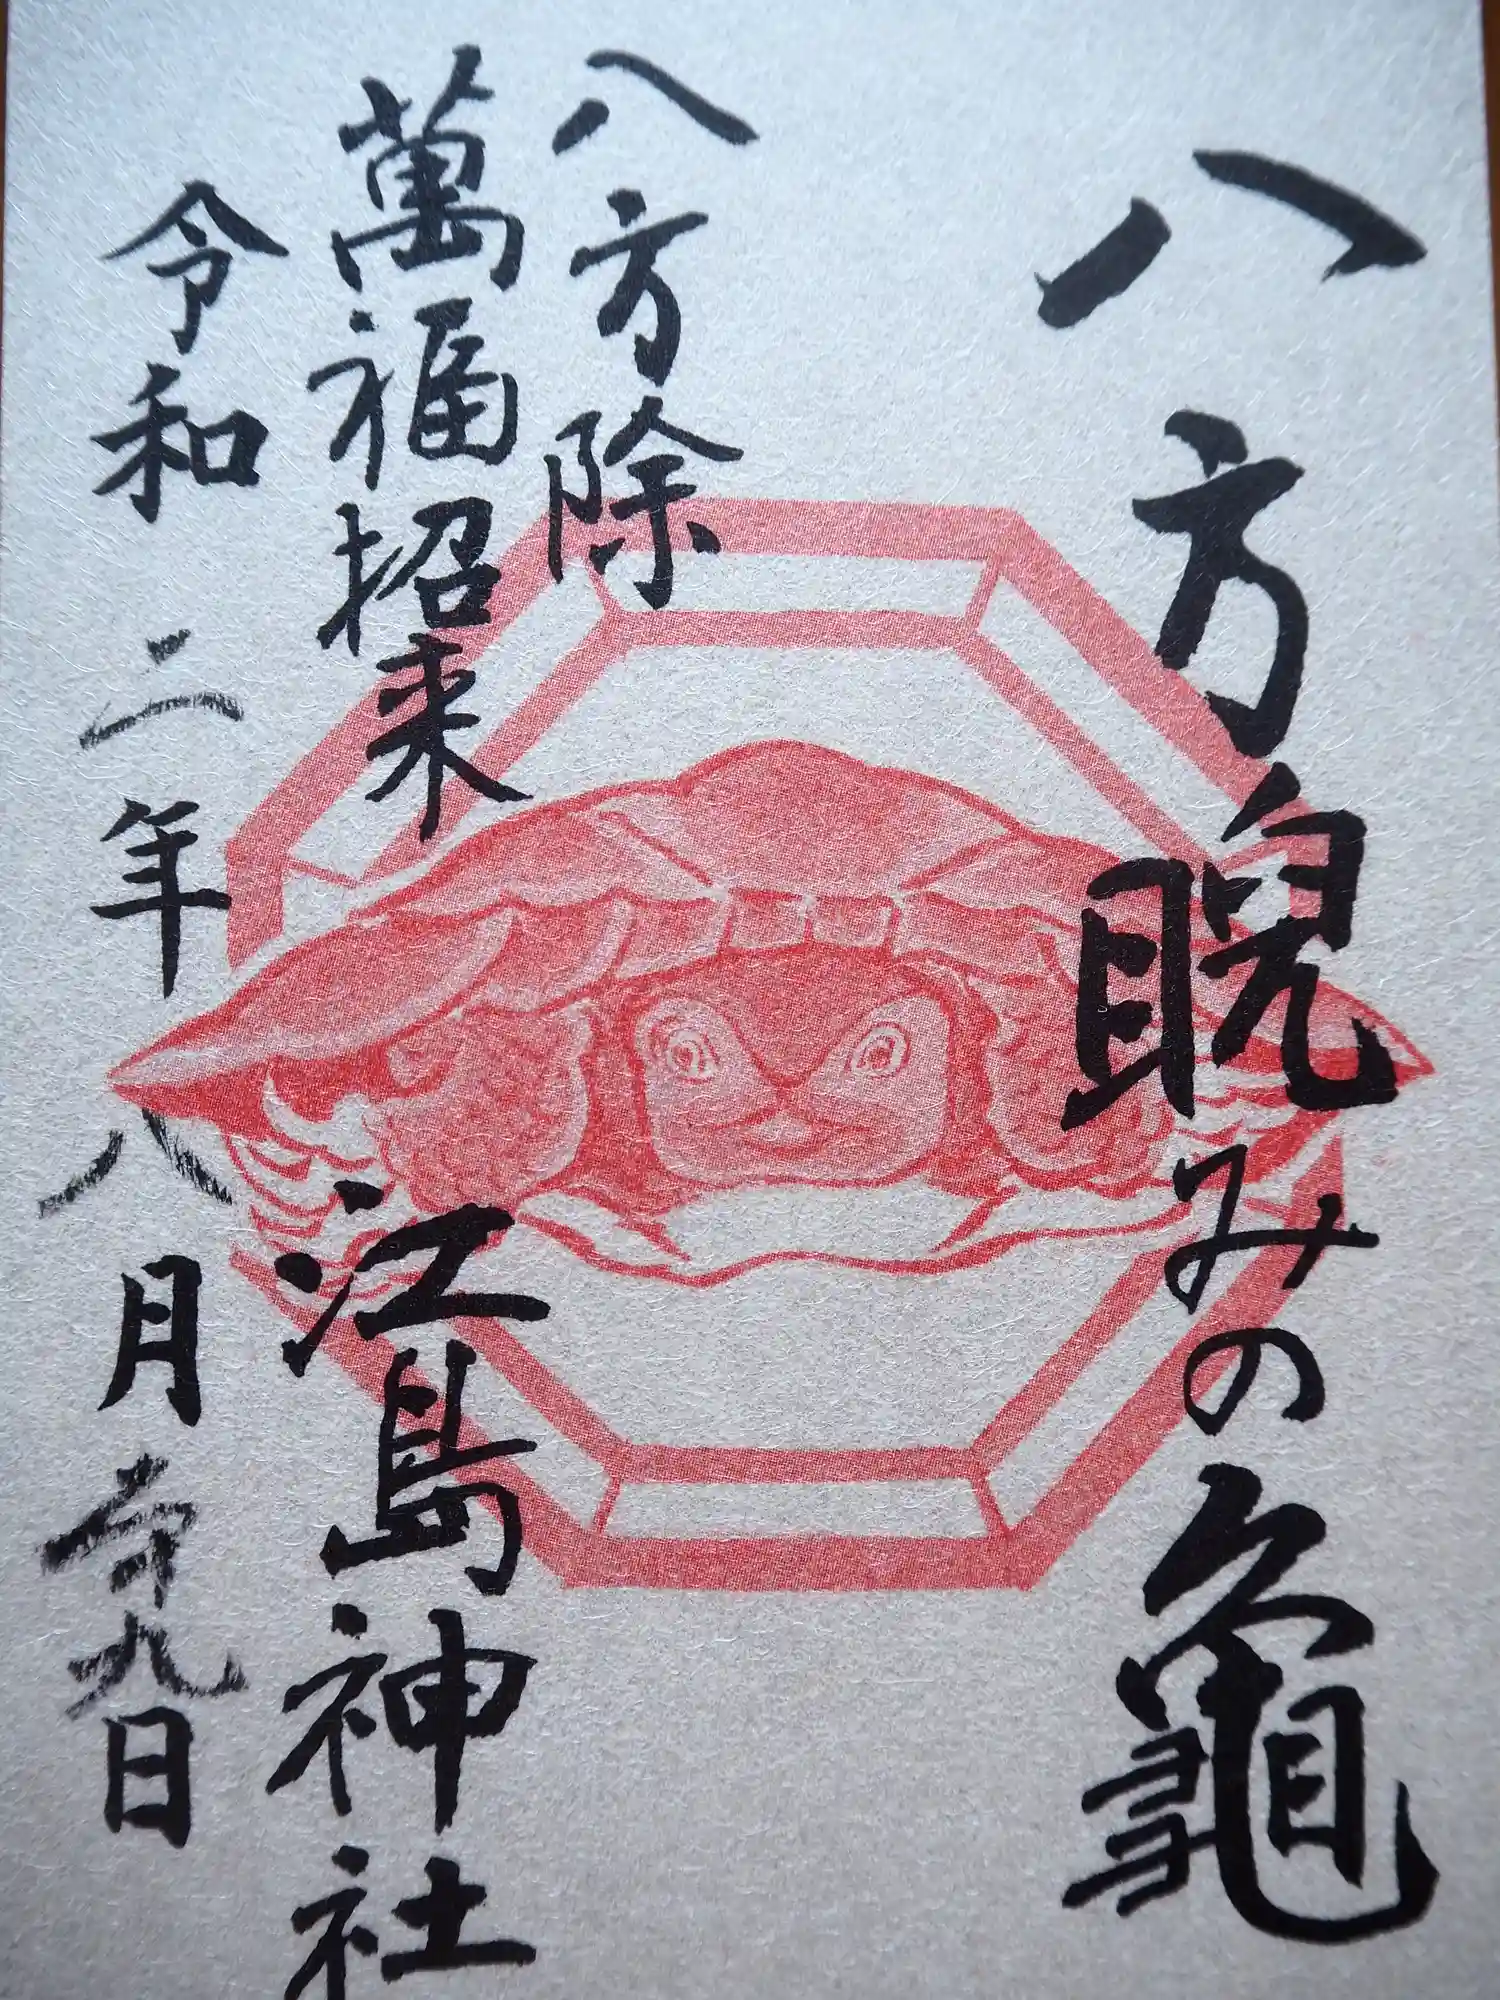 八方睨みの龜
八方除
萬福招来
江島神社
令和二年八月廿九日